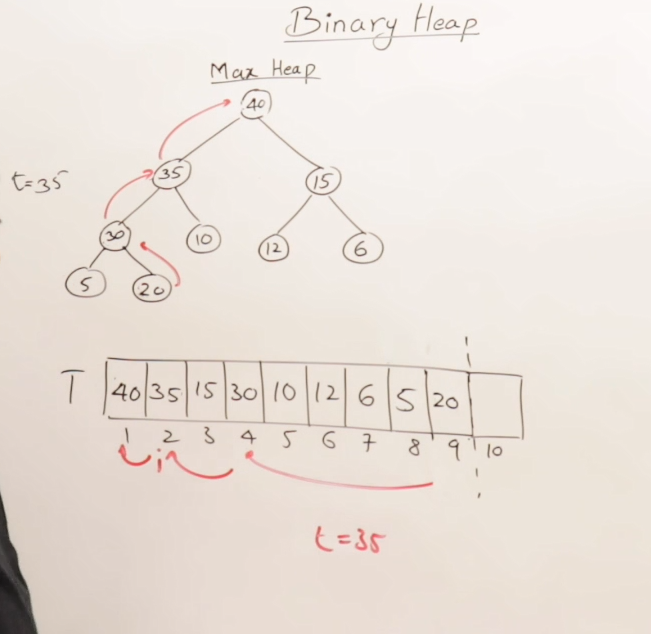 Binary Heap
Max Heap
40
t=35
35
15
30
10
12
6
5
20
T
40 35 15 30 10 12 6 5 20
1 2 3 4 5 6 7 8 9 10
i
t=35